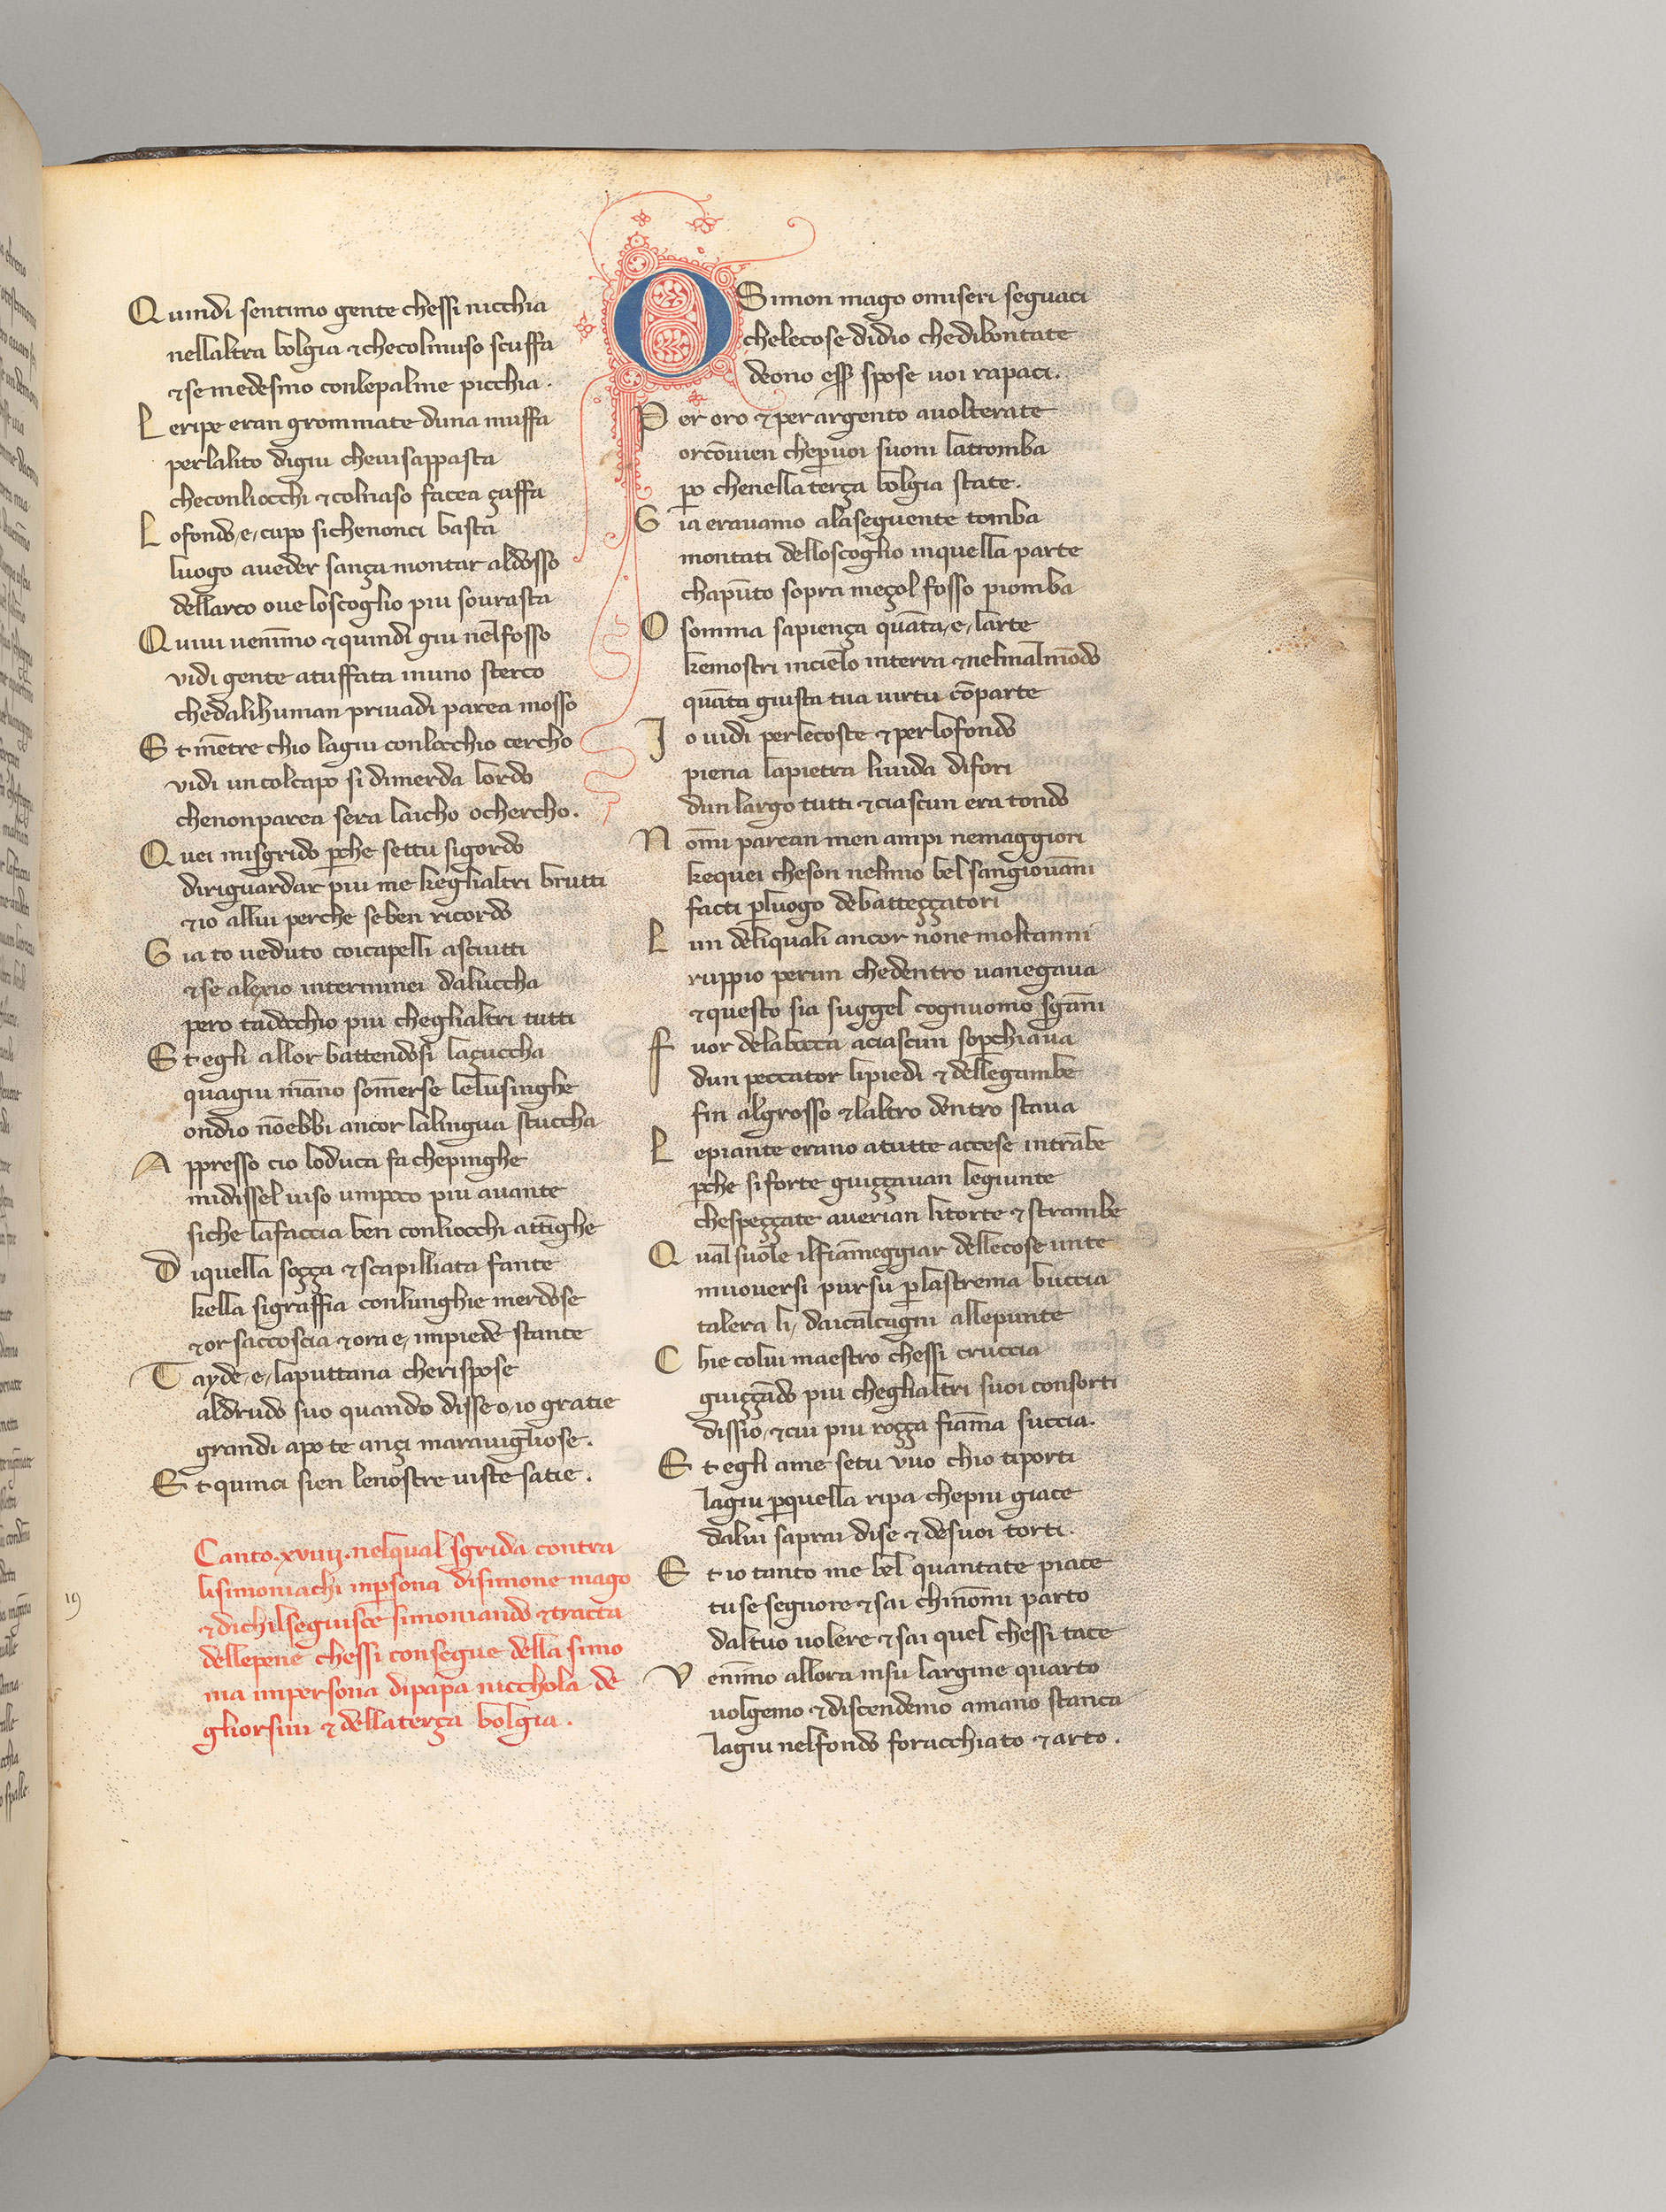 Quindi sentimo gente chessi nicchia
nellaltra bolgia ⁊checolmuso scuffa
⁊se medesmo conlepalme picchia.
Leripe eran grommate duna muffa
perlalito digiu chevisappasta
checonliocchi ⁊colnaso facea çuffa
Lofondo,e,cupo sichenonci basta
luogo aveder sança montar aldosso
dellarco ove loscoglio piu sourasta
Quiui uenim̄o ⁊quindi giu nelfosso
vidi gente atuffata inuno sterco
chedalihuman priuadi parea mosso
Et mētre chio lagiu conlocchio cercho
vidi uncolcapo si dimerda lordo
chenonparea sera laicho ochercho.
Quei misgrido ꝑche settu sigordo
diriguardar piu me keglialtri brutti
⁊io allui perche seben ricordo
Gia to ueduto coicapelli asciutti
⁊se alexio interminei daluccha
pero tadocchio piu cheglialtri tutti
Et egli allor battendosi laçuccha
quagiu māno som̄erse lelusinghe
ondio nōebbi ancor lalingua stuccha
Appresso cio loduca fa chepinghe
midissel uiso unpoco piu auante
siche lafaccia ben conliocchi attīghe
Diquella soçça ⁊scapilliata fante
kella sigraffia conlunghie merdose
⁊or saccoscia ⁊ora e, impiede stante
Tayde,e,laputtana cherispose
aldrudo suo quando disse o,io gratie
grandi apo te ançi marauigliose.
Et quinci sien lenostre uiste satie.
Canto.xviiij.nelqual sgrida contra
lisimoniachi inꝑsona disimone mago
⁊dichilseguisce simoniando ⁊tratta
dellepene chessi consegue della simo
nia impersona dipapa nicchola de
gliorsini ⁊ dellaterça bolgia.
19
O Simon mago omiseri seguaci
chelecose didio chedibontate
deono eſſ̄ spose uoi rapaci.
Per oro ⁊ per argento auolterate
orcōuien cheꝑuoi suoni latromba
ꝑo chenella terça bolgia state.
Gia erauamo alaseguente tomba
montati delloscoglio inquella parte
chapūto sopra meçol fosso piomba
O somma sapiença quāta,e,larte
kemostri incielo interra ⁊nelmalmōdo
quāta giusta tua uirtu cōparte
Io uidi perlecoste ⁊perlofondo
piena lapietra liuida difori
dun largo tutti ⁊ciascun era tondo
Nom̄i parean men ampi nemaggiori
kequei cheson nelmio bel sangiouāni
facti ꝑluogo debatteççatori
Lun deliquali ancor nōne moltanni
ruppio perun chedentro uanegaua
⁊questo sia suggel cognuomo sgāni
Fuor delabocca aciascun soꝑchiaua
dun peccator lipiedi ⁊ dellegambe
fin algrosso ⁊laltro dentro staua
Lepiante erano atutte accese intrābe
ꝑche siforte guiççauan legiunte
chespeççate auerian litorte ⁊strambe
Qual suole ilfiām̄eggiar dellecose unte
muouersi pursu ꝑlastrema buccia
talera li, daicalcagni allepunte
Chie colui maestro chessi cruccia
guiççādo piu cheglialtri suoi consorti
dissio,⁊cui piu roçça fiam̄a succia.
Et egli ame setu vuo chio tiporti
lagiu ꝑquella ripa chepiu giace
dalui saprai dise ⁊ desuoi torti.
Et io tanto me bel quantate piace
tuse segnore ⁊sai chinōmi parto
daltuo uolere ⁊sai quel chessi tace
Venim̄o allora insu largine quarto
uolgemo ⁊discendemo amano stanca
lagiu nelfondo foracchiato ⁊arto.